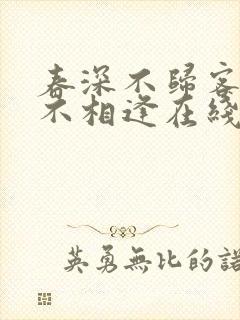 春深不歸客
不相逢在綫
英勇無比的諾